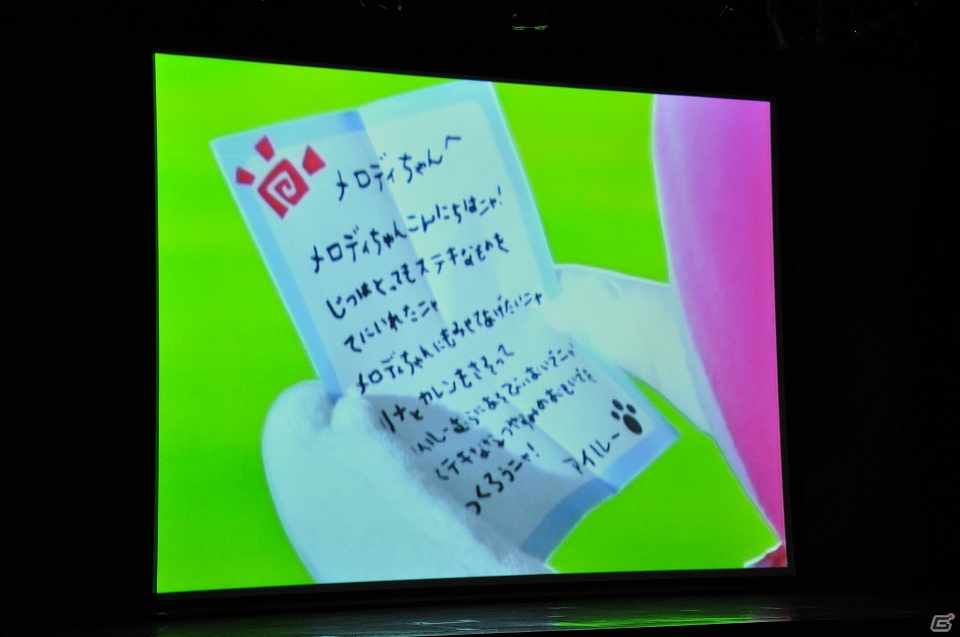 メロディちゃんへ
メロディちゃんこんにちはニャ!
じつはとってもステキなものを
てにいれたニャ
メロディちゃんにもみせてあげたいニャ
リナとカレンもさそって
アイルーむらにあそびにおいでニャ
ステキななつやすみのおもいでを
つくろうニャ!
アイルー